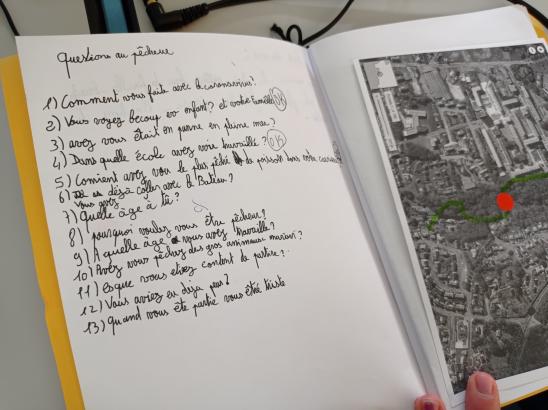 questions au pêcheur
1) Comment vous faite avec le coronavirus?
2) Vous voyez becoup vo enfant? et votre famille OK
3) avez vous étaît en panne en pleine mer?
4) Dans quelle école avez voir travaille? OK
5) Comient avez vou le plus pêché de poisson dans votre
6) vous avez déjà coller avec le Bateau?
7) quelle âge à tu?
8) pourquoi voulez vous être pêcheur?
9) A quelle âge vous avez travaille?
10) Avez vous pêchez des gros animeaux marieux?
11) Esque vous etiez content de partire?
12) Vous aviez eu déjà peur?
13) Quand vous ête partie vous étié triste